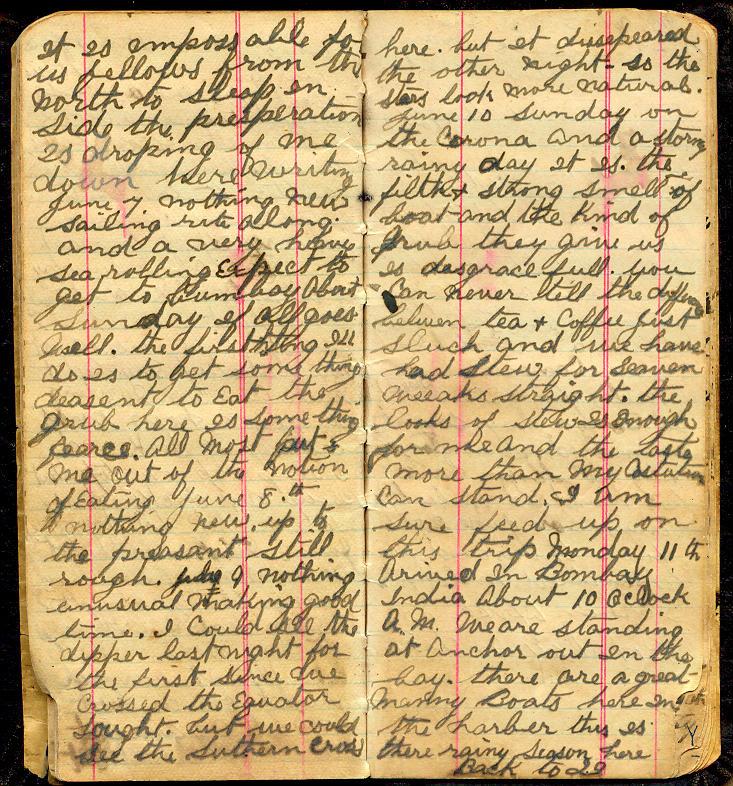 it is imposs able for
us fellows from the
North to sleep in
side the presperation
is droping of me
down here writing
June 7 nothing New
sailing rite along.
and a very heavy
sea rolling Expect to
get to Bumbay About
Sunday if all goes
well. the first thing Ill
do is to get some thing
deasent to Eat the
grub here is something
fearce. All Most put
me out of the notion
of Eating June 8.th
nothing new. up to
the preasant still
rough. 9 nothing
unusual making good
time. I Could see the
dipper last night for
the first since we
Crossed the Equator
sought. but we could
see the Suthern Cross
here. but it dissepeared
the other night - so the
stars look more natural.
June 10 Sunday on
the Corona and a stormy
rainy day it is. the
filth + strong smell of
boat and the kind of
grub they give us
is desgrace full. you
Can never till the
between tea + Coffee just
sluch and we have
had stew for Seaven
weeaks straight. the
looks of stew is Enough
for me and the taste
more than my
Can stand. I am
sure feed up on
this trip Monday 11 th
Arived In Bombay
India About 10 oclock
A.M. We are standing
at Anchor out in the
bay. there are a great
Manny Boats here in
the harber this is
there rainy season here
Back to 29